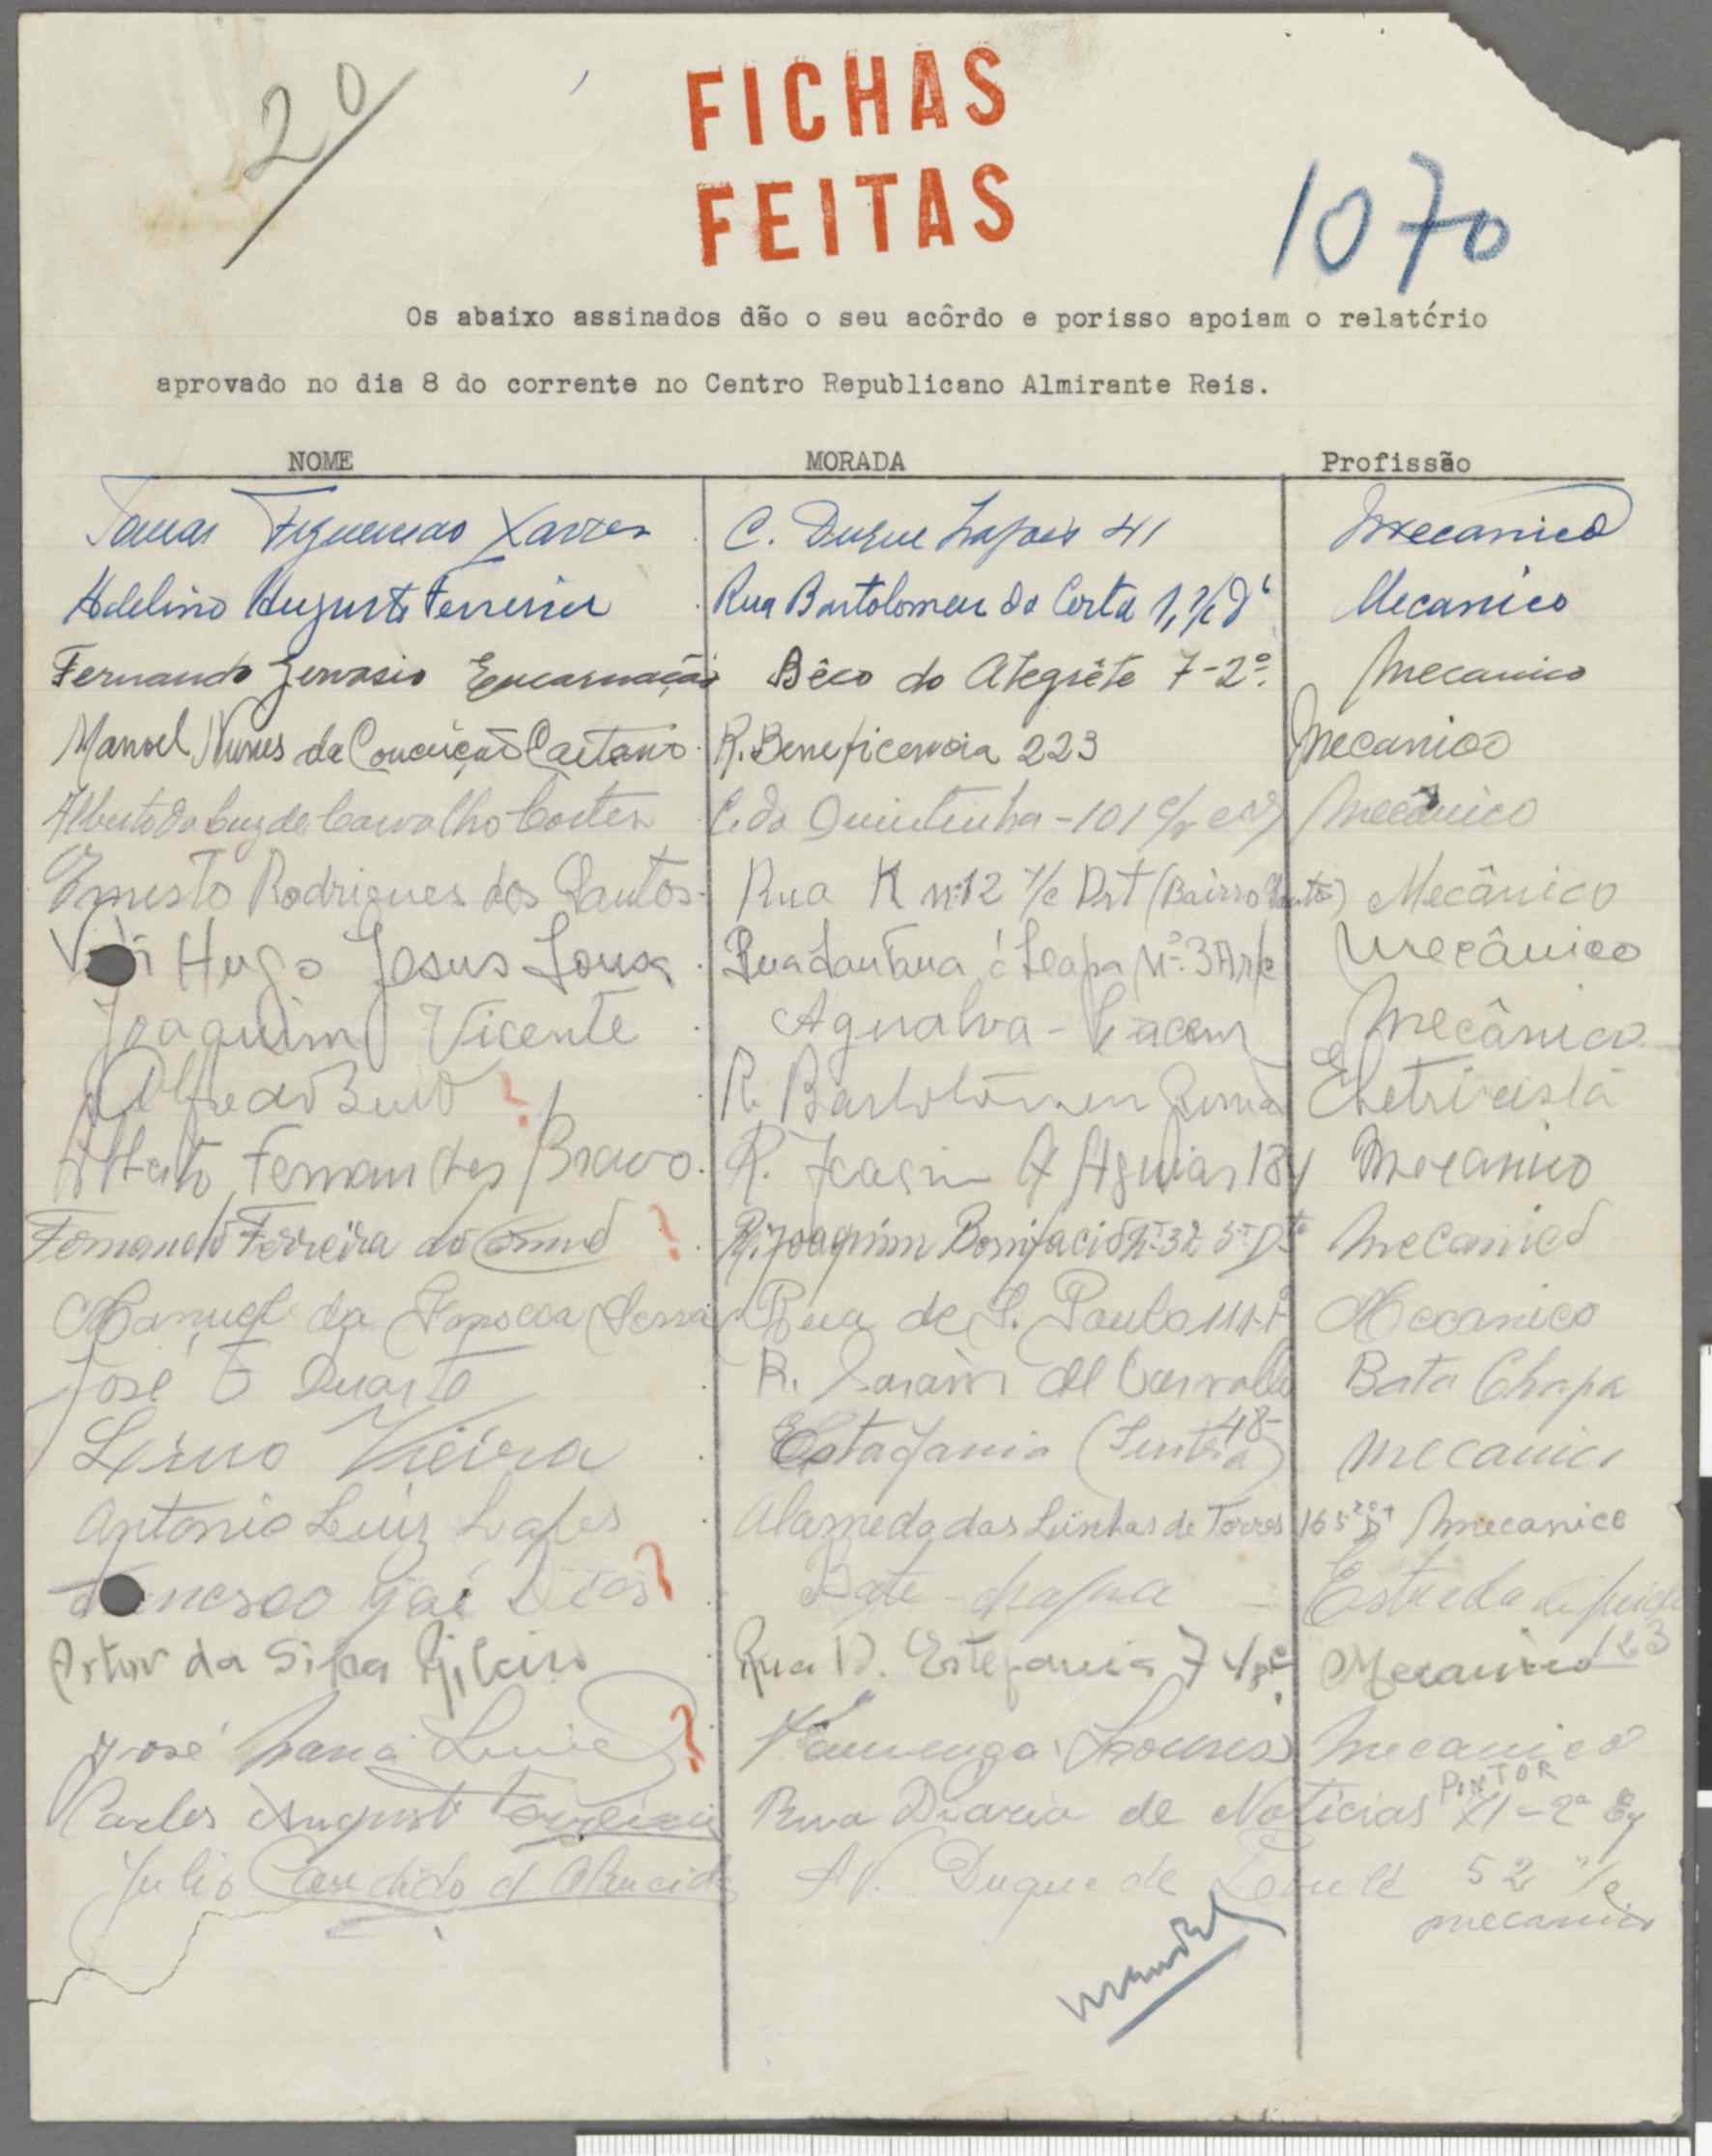 20
FICHAS
FEITAS
1070
Os abaixo assinados dão o seu acôrdo e porisso apoiam o relatório
aprovado no dia 8 do corrente no Centro Republicano Almirante Reis.
NOME MORADA Profissão
C. Duque Lafões 41 Mecanico
Adelino Augusto Ferreira Rua Bartolomeu da Costa 1, Mecanico
Fernando Gervasio Encarnação Bêco do Alegrête 7-2º. Mecanico
Manoel Nunes da Conceição Caetano R. Beneficencia 223 Mecanico
Alberto da Luz de Carvalho C. da Quintinha - 101 Mecânico
Ernesto Rodrigues dos Santos Rua K nº 12 r/c Drt (Bairro Mecânico
Hugo Jesus Sousa Rua Santana á Lapa Nº. 3A r/c Mecânico
Joaquim Vicente Agualva - Cacem Mecânico
Alfredo ? R. Bartolomeu Eletricista
Alberto Fernandes Bravo. R. A Aguiar Mecanico
Fernando Ferreira do ? R. Joaquim Bonifacio Nº 32 Mecanico
Manuel da Fonseca Rua de S. Paulo Mecanico
José Duarte R. de Carvalho Bata Chapa
48-
Vieira (Sintra) Mecanico
Antonio Luiz Lopes Alameda das Linhas de Torres 165 Mecanico
? Bate-chapa - Estrada de
123
Artur da Silva Rua D. Estefania 74 Mecanico
José Luiz ? (Loures) Mecanico
PINTOR
Carlos August Rua Diario de Noticias XI-2º Eq
Julio Candido d Almeida AV. Duque de Loulé 52 r/c
mecanico